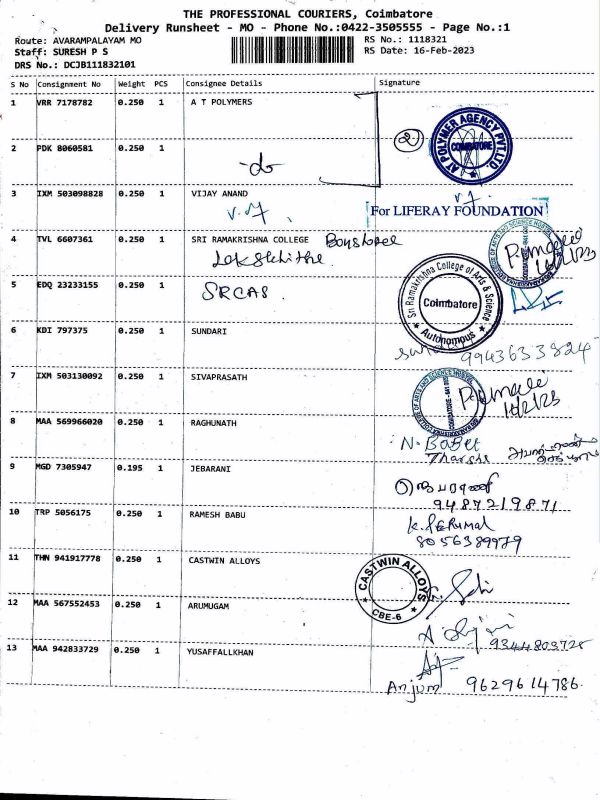 THE PROFESSIONAL COURIERS, Coimbatore
Delivery Runsheet - MO - Phone No.:0422-3505555 - Page No.:1
Route: AVARAMPALAYAM MO
RS No.: 1118321
Staff: SURESH P S
RS Date: 16-Feb-2023
DRS No.: DCJB111832101
S No Consignment No Weight PCS Consignee Details Signature
1 VRR 7178782 0.250 1 A T POLYMERS
2
AT POLYMER AGENCY PVT.LTD.
COIMBATORE
2 PDK 8060581 0.250 1
3 IXM 503098828 0.250 1 VIJAY ANAND
For LIFERAY FOUNDATION
4 TVL 6607361 0.250 1 SRI RAMAKRISHNA COLLEGE
16/2/23
5 EDQ 23233155 0.250 1 SRCAS.
Sri Ramakrishna College of Arts & Science
Coimbatore
Autonomous
6 KDI 797375 0.250 1 SUNDARI
9943633824
7 IXM 503130092 0.250 1 SIVAPRASATH
16/2/23
8 MAA 569966020 0.250 1 RAGHUNATH
N. Babu
9 MGD 7305947 0.195 1 JEBARANI
9487219871
10 TRP 5056175 0.250 1 RAMESH BABU
K. PERUMAL
8056389979
11 THN 941917778 0.250 1 CASTWIN ALLOYS
CASTWIN ALLOYS
CBE-6
12 MAA 567552453 0.250 1 ARUMUGAM
9344803725
13 MAA 942833729 0.250 1 YUSAFFALLKHAN
Anjum 9629614786